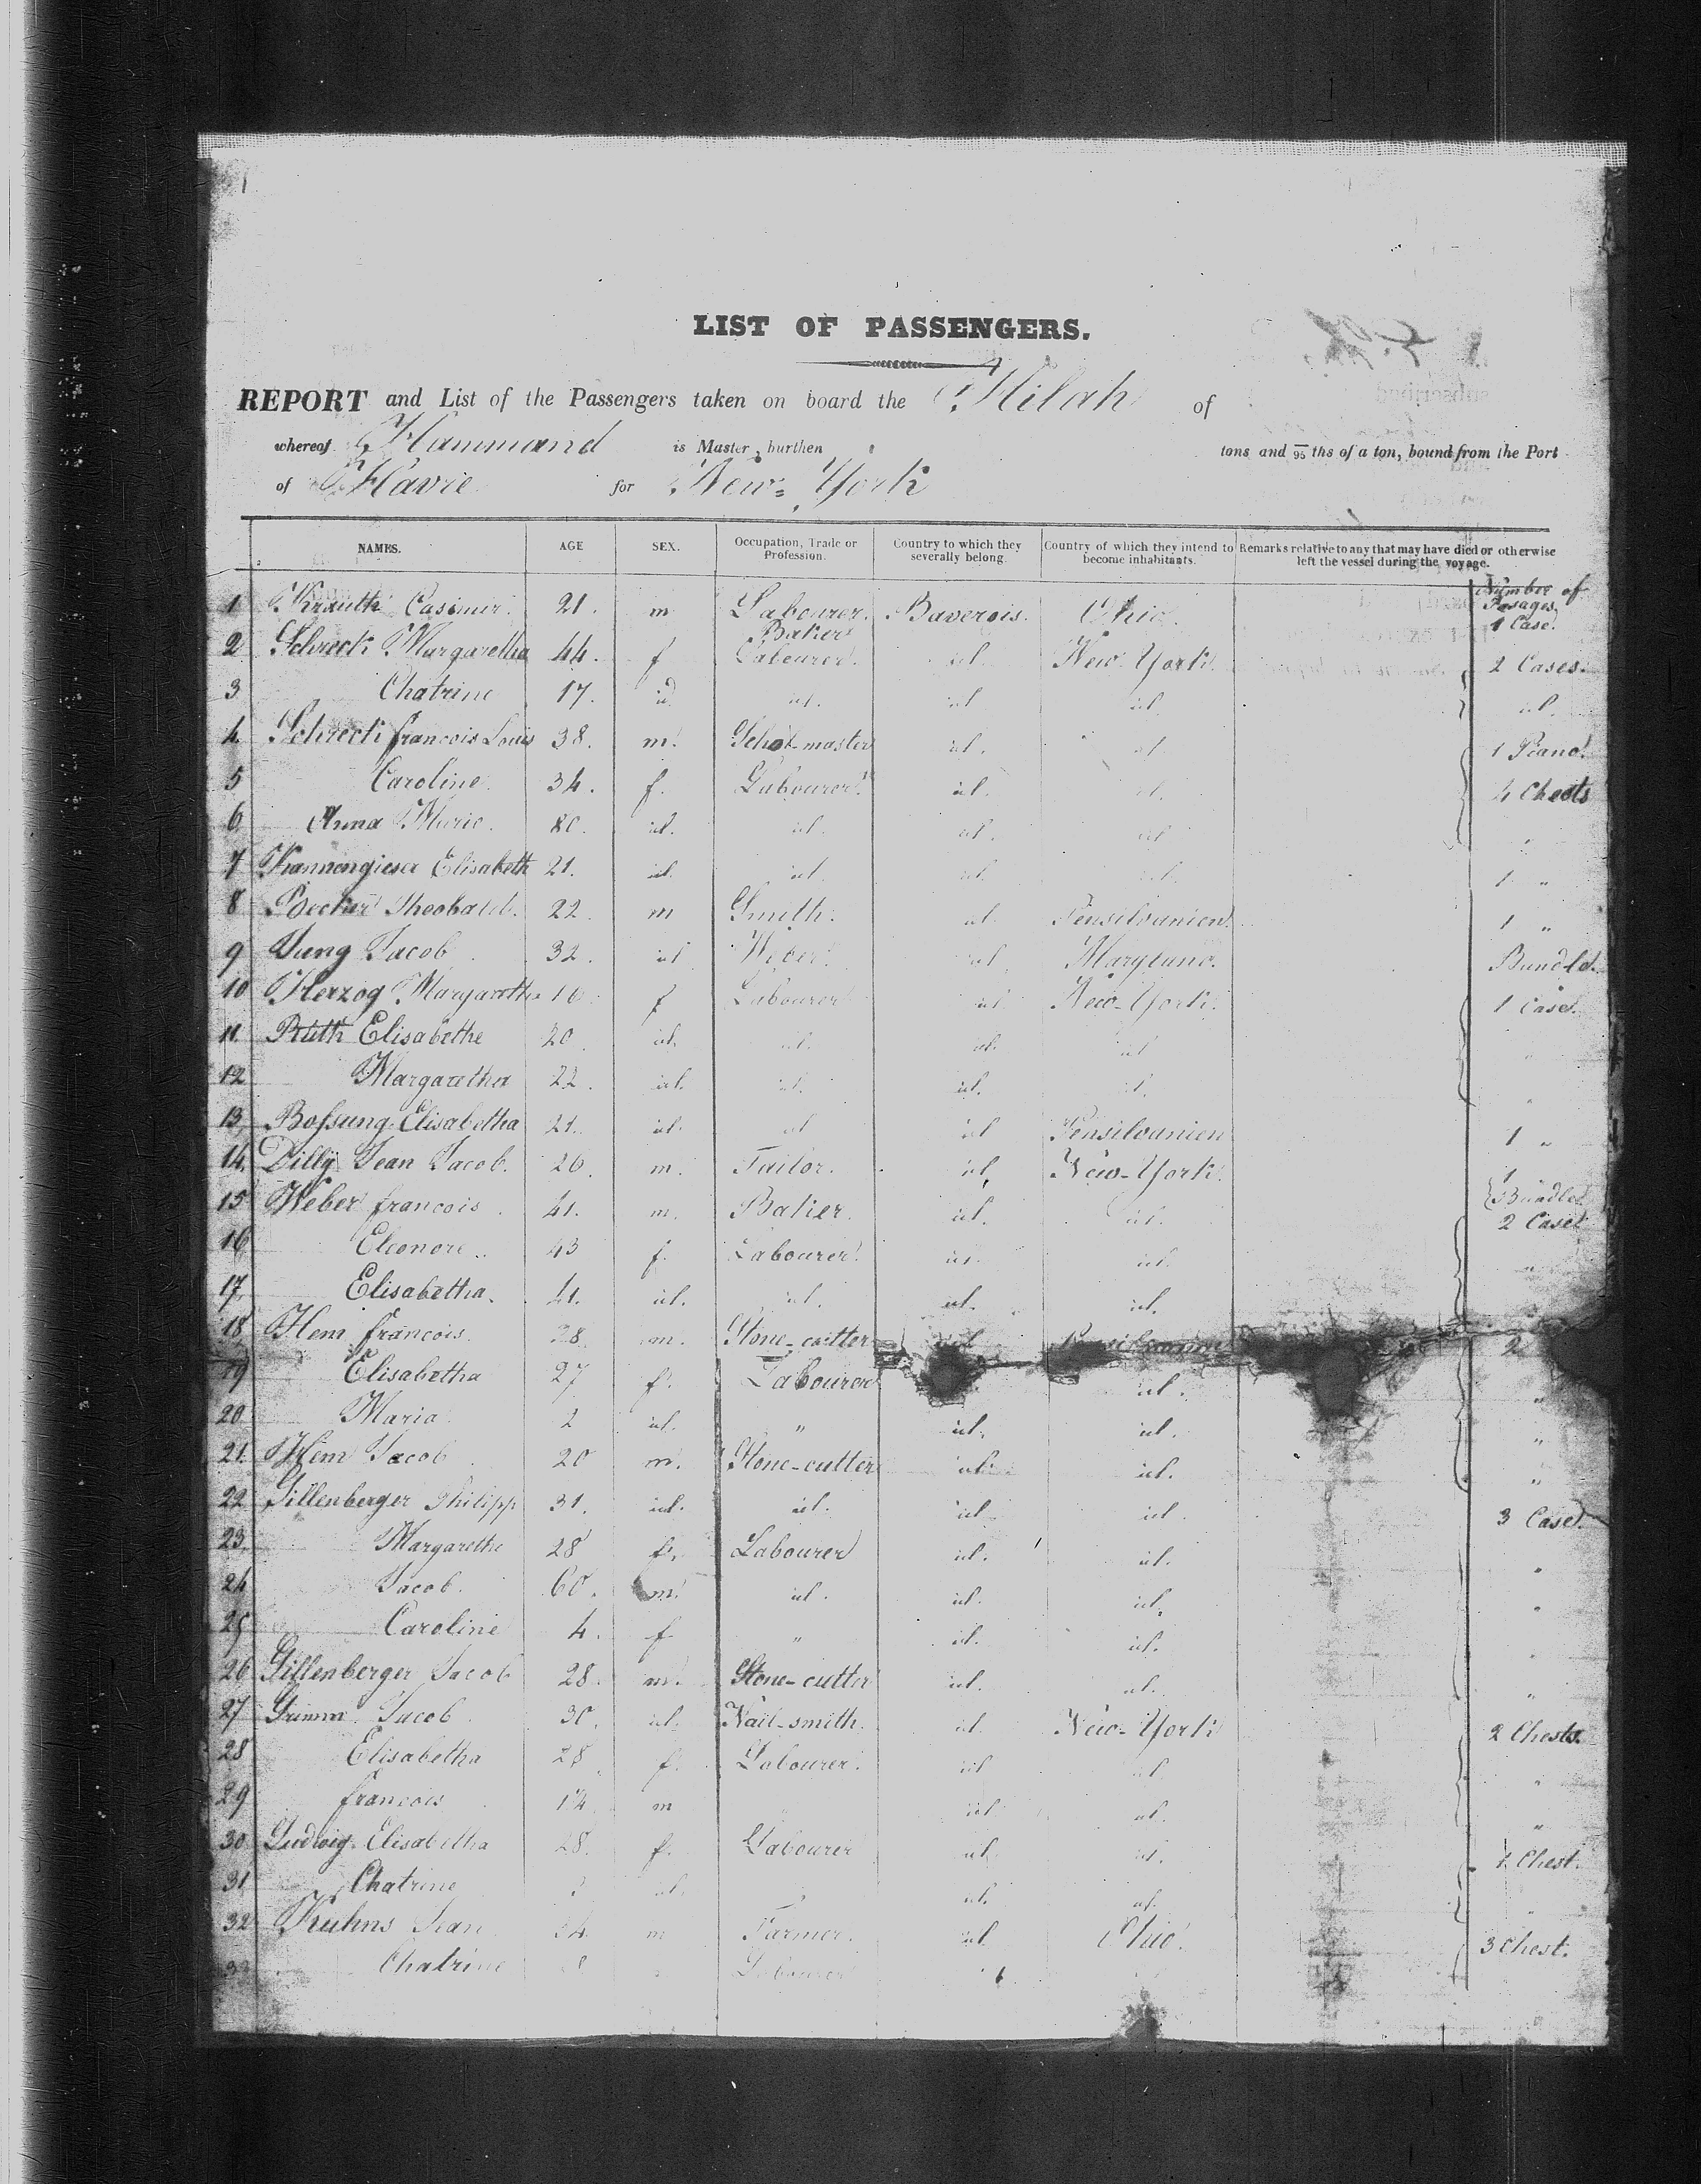 LIST OF PASSENGERS.
REPORT and List of the Passengers taken on board the Hilah of
whereof Hammand is Master, burthen tons and 95 ths of a ton, bound from the Port
of Havre for New-York
NAMES. AGE SEX. Occupation, Trade or Profession. Country to which they severally belong. Country of which they intend to become inhabitants. Remarks relative to any that may have died or otherwise left the vessel during the voyage.
Number of
1 Krauth Casimir. 21. m Labourer. Baverois. Ohio. 1 Case.
Baker
2 Schreck Margaretha 44. f Labourer. id. New York. 2 Cases.
3 Chatrine 17. id id. id id id.
4. Schreck francois Louis 38. m. Schol-master id. id 1 Piano.
5 Caroline. 34. f. Labourer. id. id. 4 Chests
6 Anna Marie. 80. id. id. id. id "
7 Kannengieser Elisabeth 21. id. id. id id. 1 "
8 Becker Theobald. 22. m Smith. id. Pensilvanien. 1 "
9 Jung Jacob 32. id Weber. id Maryland. Bundle.
10 Herzog Margaretha 16. f Labourer id New-York. 1 Case.
11. Ruth Elisabethe 20. id. id. id. id "
12 Margaretha 22. id. id. id. id. "
13 Bossung Elisabetha 21. id. id id Pensilvanien 1 "
14. Dilly Jean Jacob. 26. m. Tailor. id. New-York. 1 Bundle
15 Weber francois. 41. m. Baker. id. id. 2 Case
16 Eleonore.. 43 f. Labourer. id. id. "
17. Elisabetha. 41. id. id. id. id.
18 Hem francois. 28 m. Stone-cutter id 2
19 Elisabetha 27 f. Labourer id. "
20 Maria 2 id. " id. id. "
21. Hem Jacob 20 m. Stone-cutter id. id. "
22 Gillenberger Philipp 31. id. id. id. id. 3 Case.
23. Margarethe 28 f. Labourer id. id. "
24 Jacob. 60. m. id. id. id. "
25 Caroline 4. f " id. id. "
26 Gillenberger Jacob 28. m. Stone-cutter id. id. "
27 Grimm Jacob. 30. id. Nail-smith. id. New-York 2 Chests.
28 Elisabetha 28. f. Labourer. id id. "
29 francois 14. m id id. "
30. Ludwig Elisabetha 28. f. Labourer id. id. 1 Chest.
31 Chatrine id. id. id. "
32 Kuhns Jean m Farmer. id. Ohio. 3 Chest.
33 Chatrine Labourer